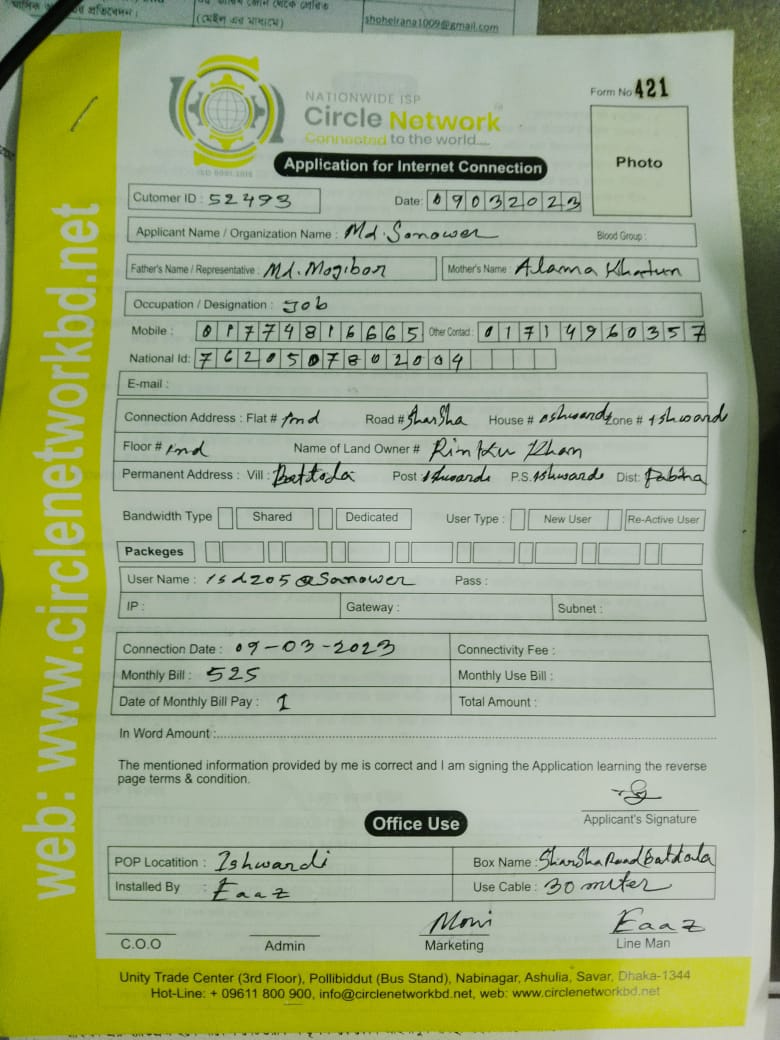 (মেইল এর মাধ্যমে)
shohelrana1009@gmail.com
NATIONWIDE ISP
Circle Network
Connected to the world....
ISO 9001:2015
Form No 421
Photo
Application for Internet Connection
Cutomer ID : 52493
Date: 09032023
Applicant Name / Organization Name : Md. Sanower
Blood Group :
Father's Name / Representative : Md. Mojibor
Mother's Name : Alama Khatun
Occupation / Designation : Job
Mobile : 01774816665 Other Contact : 01714960357
National Id: 7620507802004
E-mail :
Connection Address : Flat # Road # Sharsha House # Zone #
Floor # Name of Land Owner # Rinku Khan
Permanent Address : Vill : Battola Post P.S. Dist: Pabna
Bandwidth Type Shared Dedicated User Type : New User Re-Active User
Packeges
User Name : isd205@Sanower Pass :
IP : Gateway : Subnet :
Connection Date : 09-03-2023 Connectivity Fee :
Monthly Bill : 525 Monthly Use Bill :
Date of Monthly Bill Pay : 1 Total Amount :
In Word Amount :
The mentioned information provided by me is correct and I am signing the Application learning the reverse
page terms & condition.
Applicant's Signature
Office Use
POP Locatition : Ishwardi Box Name : Sharsha Road battola
Installed By : Eaaz Use Cable : 30 miter
Moni Eaaz
C.O.O Admin Marketing Line Man
Unity Trade Center (3rd Floor), Pollibiddut (Bus Stand), Nabinagar, Ashulia, Savar, Dhaka-1344
Hot-Line: + 09611 800 900, info@circlenetworkbd.net, web: www.circlenetworkbd.net
web: www.circlenetworkbd.net